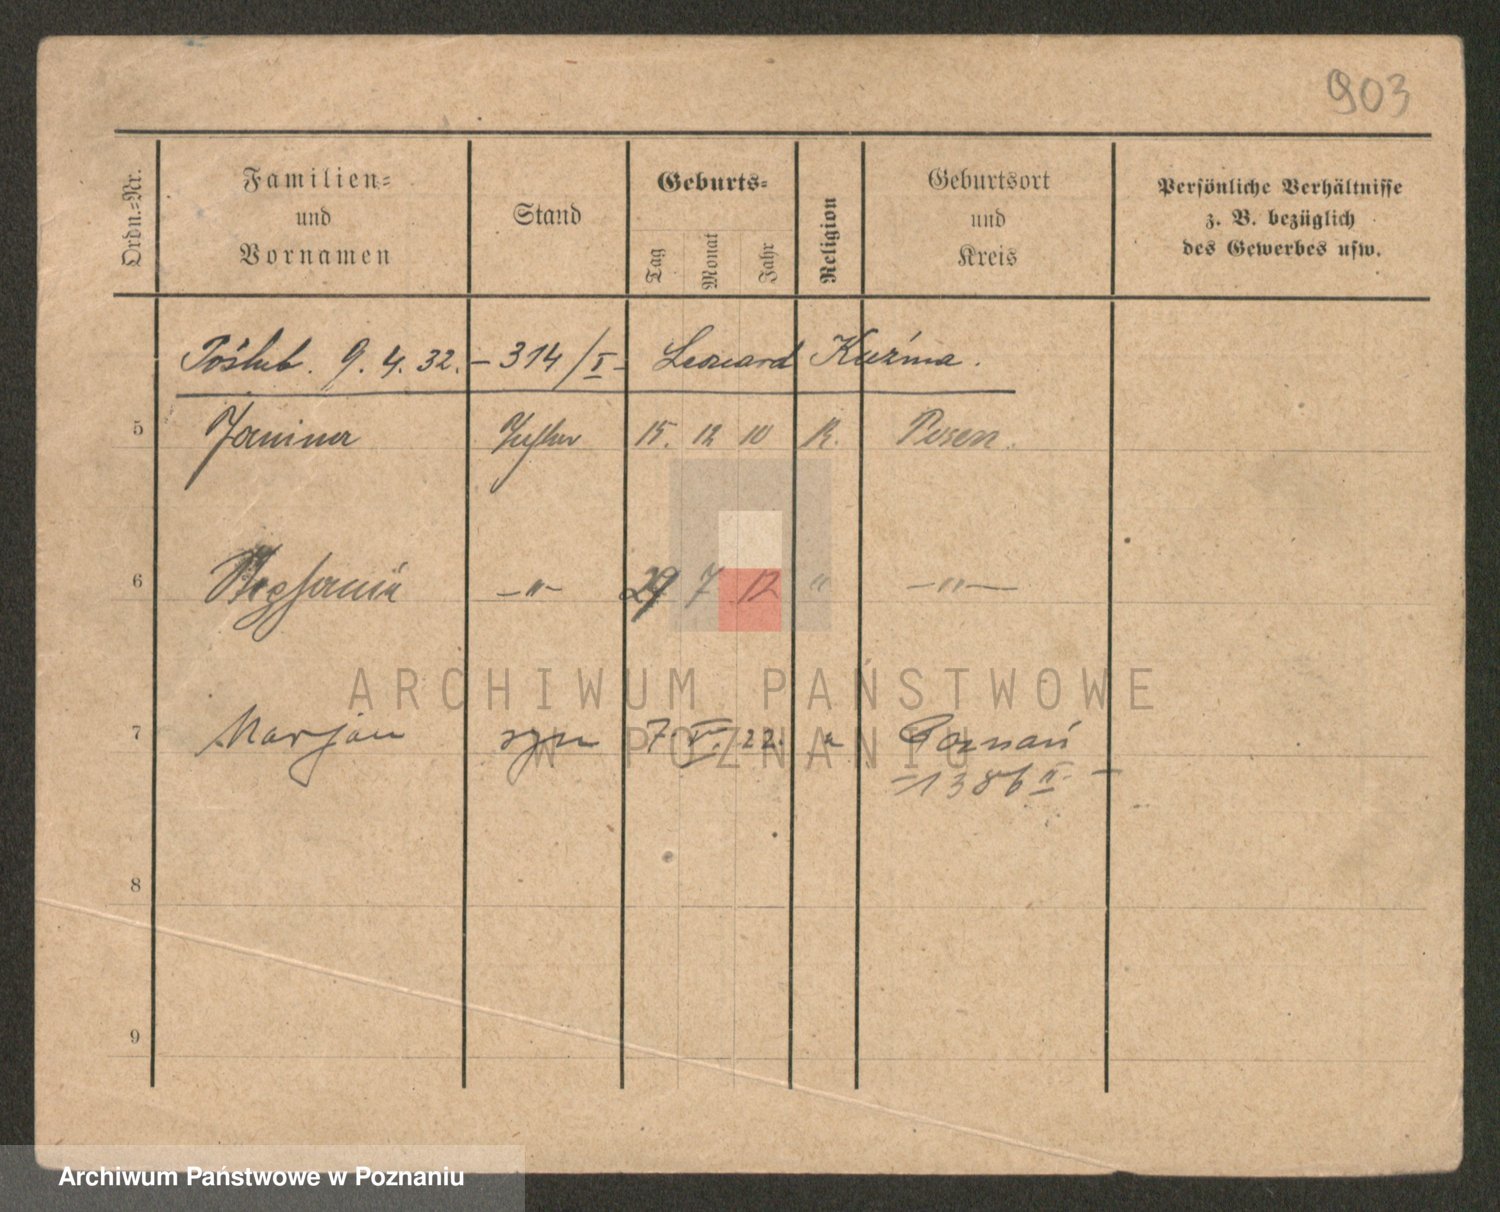 903
Ordn.=Nr.
Familien=
und
Vornamen
Stand
Geburts=
Tag
Monat
Jahr
Religion
Geburtsort
und
Kreis
Persönliche Verhältnisse
z. B. bezüglich
des Gewerbes usw.
Poślub. 9.4.32. – 314/I – Leonard Kuźma.
5 Janina 15. 12 10 K. Posen.
6 Stephania –"– 29 7 12 " –"–
7 Marjan syn 7. V. 22. " Poznań
–1386 II –
8
9
ARCHIWUM PAŃSTWOWE
W POZNANIU
Archiwum Państwowe w Poznaniu